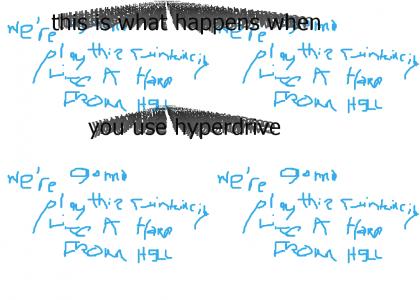 this is what happens when
you use hyperdrive
we're
play this
Like A Harp
From Hell
we're
play this
Like A Harp
From Hell
we're
play this
Like A Harp
From Hell
we're
play this
Like A Harp
From Hell